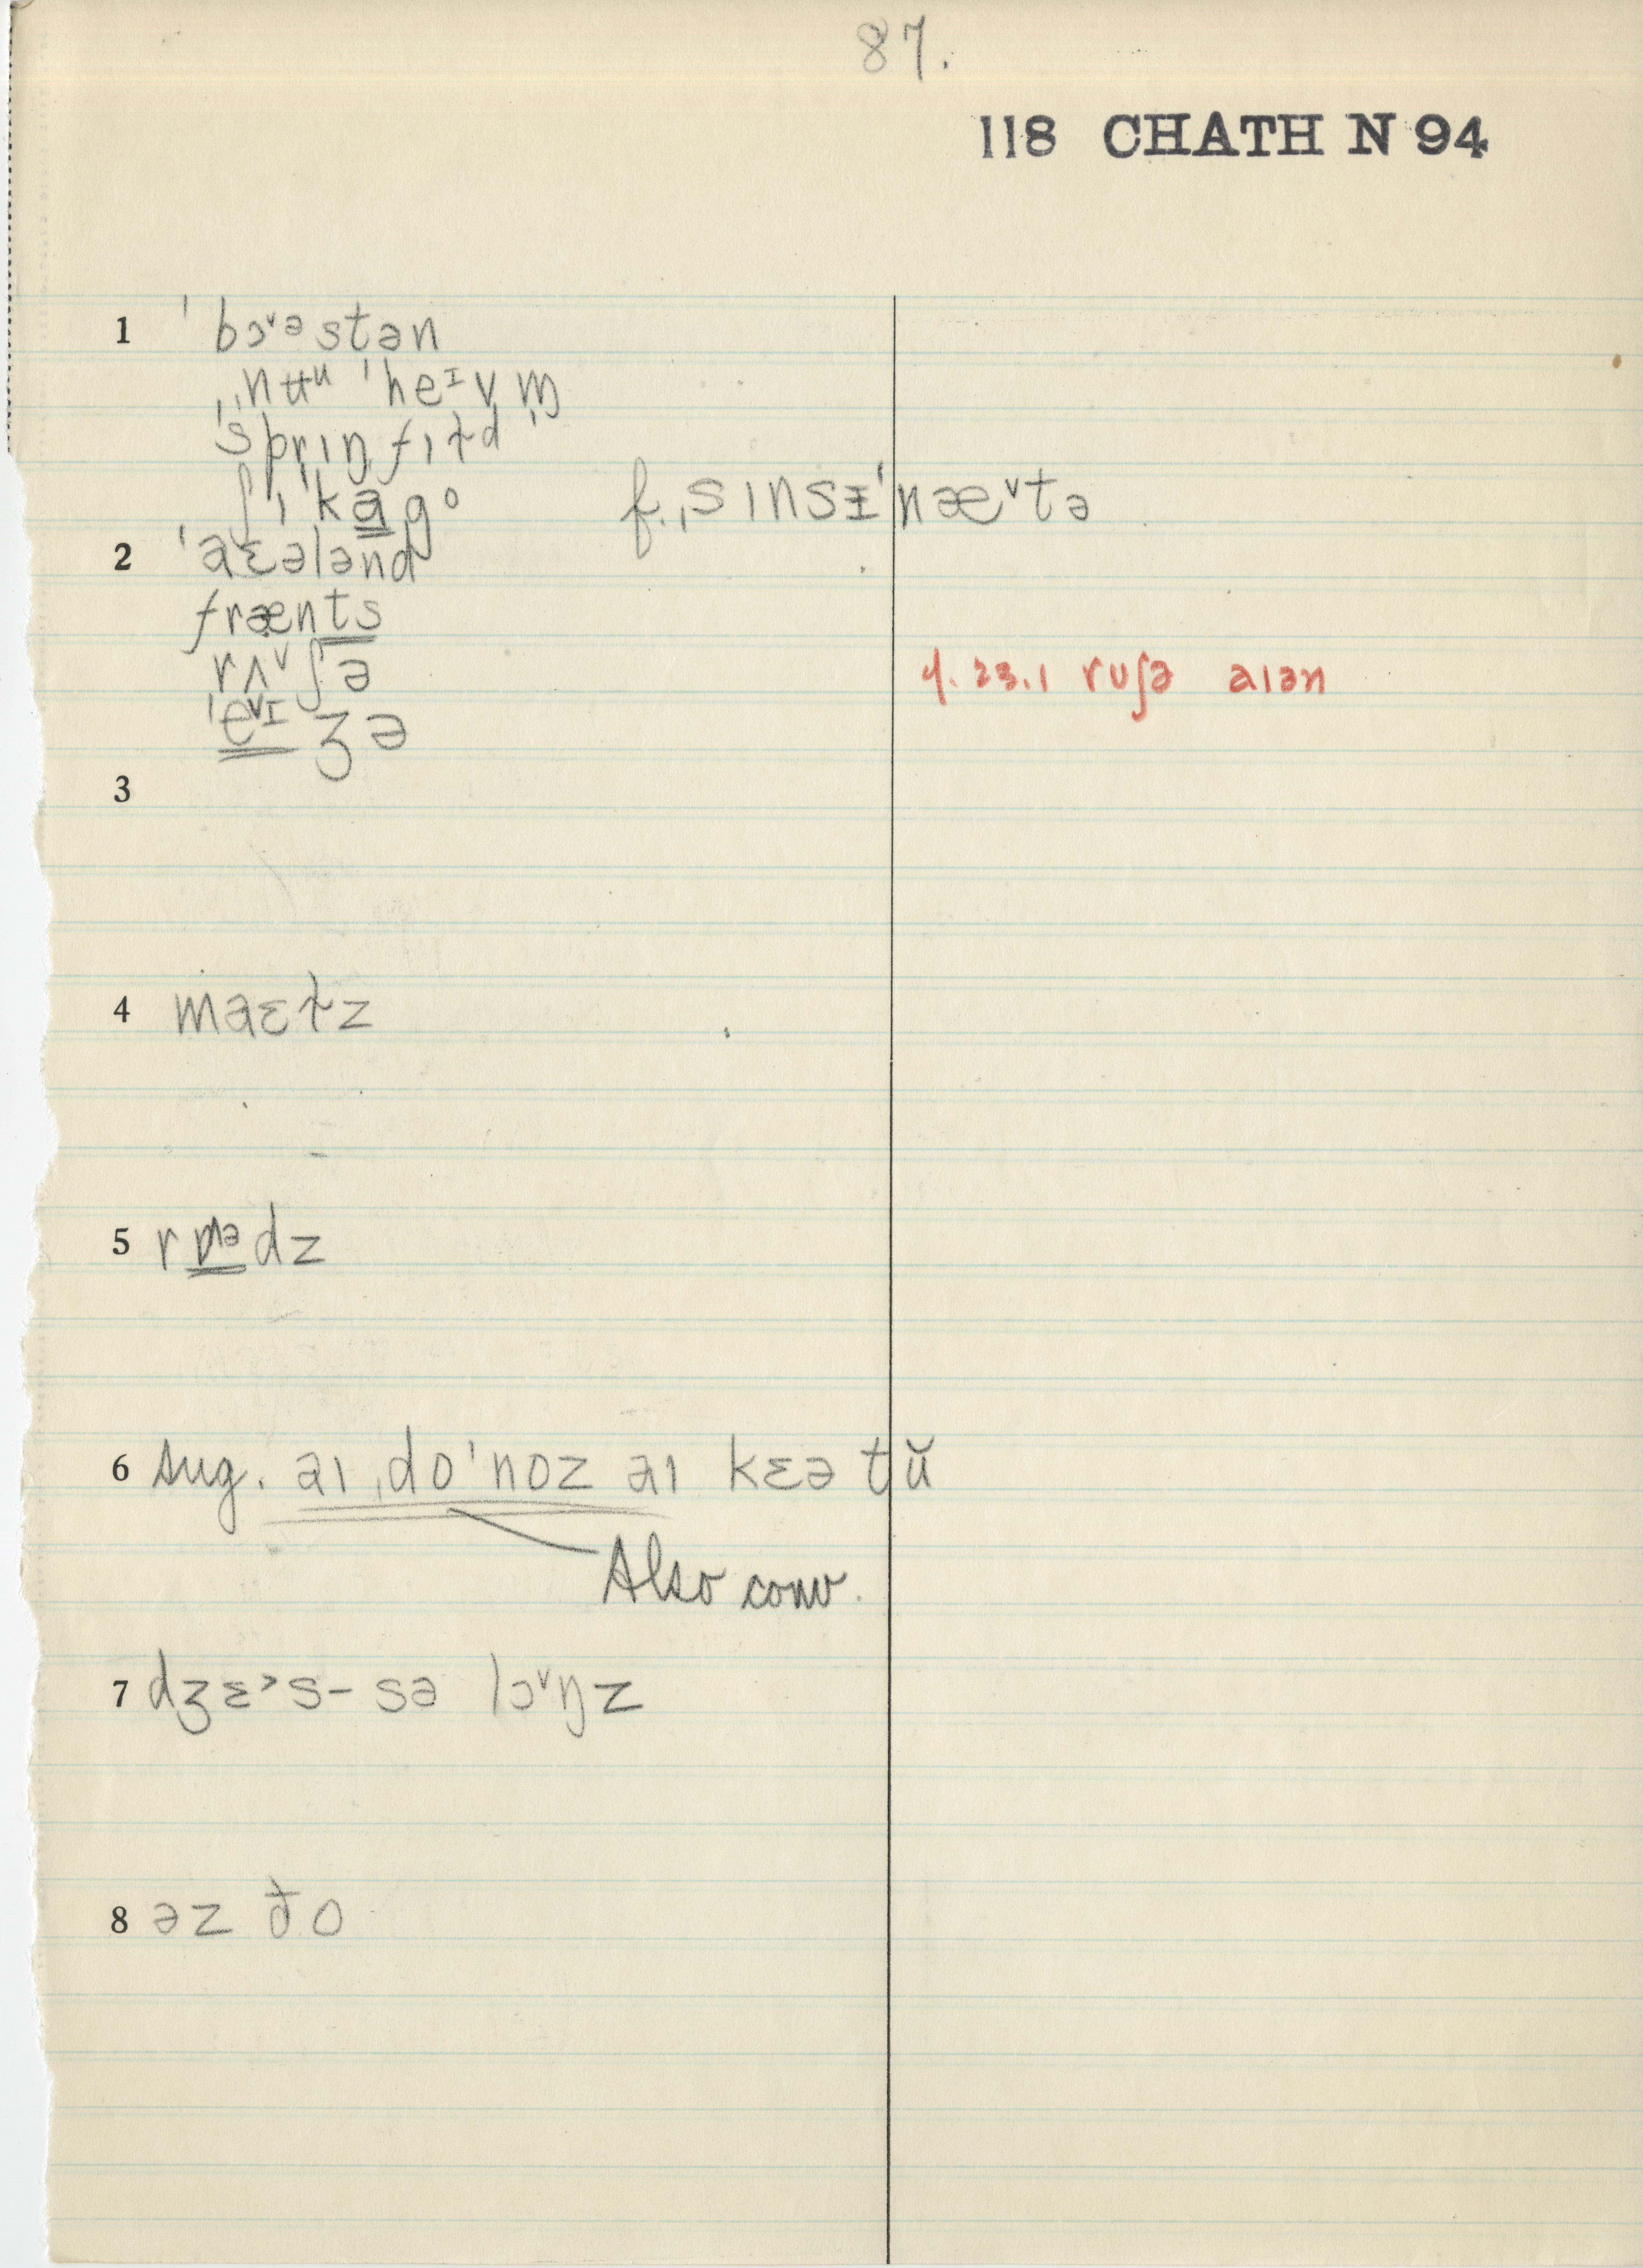 87.
118 CHATH N 94
1 ˈbɔ˅əstən
ˌnʉᵘ ˈheᶦvm̩
ˈsprɪŋˌfɪɫd
ʃɪˈkɑgº f. ˌsɪnsɪˈnæ˅tə
2 ˈaɛələnd
frænts
rʌ˅ʃə 4.23.1 ruʃə aɪən
ˈe˅ᶦʒə
3
4 maɛɫz
5 rᶺədz
6 sug. aɪ ˌdoˈnoz aɪ kɛə tŭ
Also conv.
7 dʒɛ˃s- sə lɔ˅ŋz
8 əz ðo